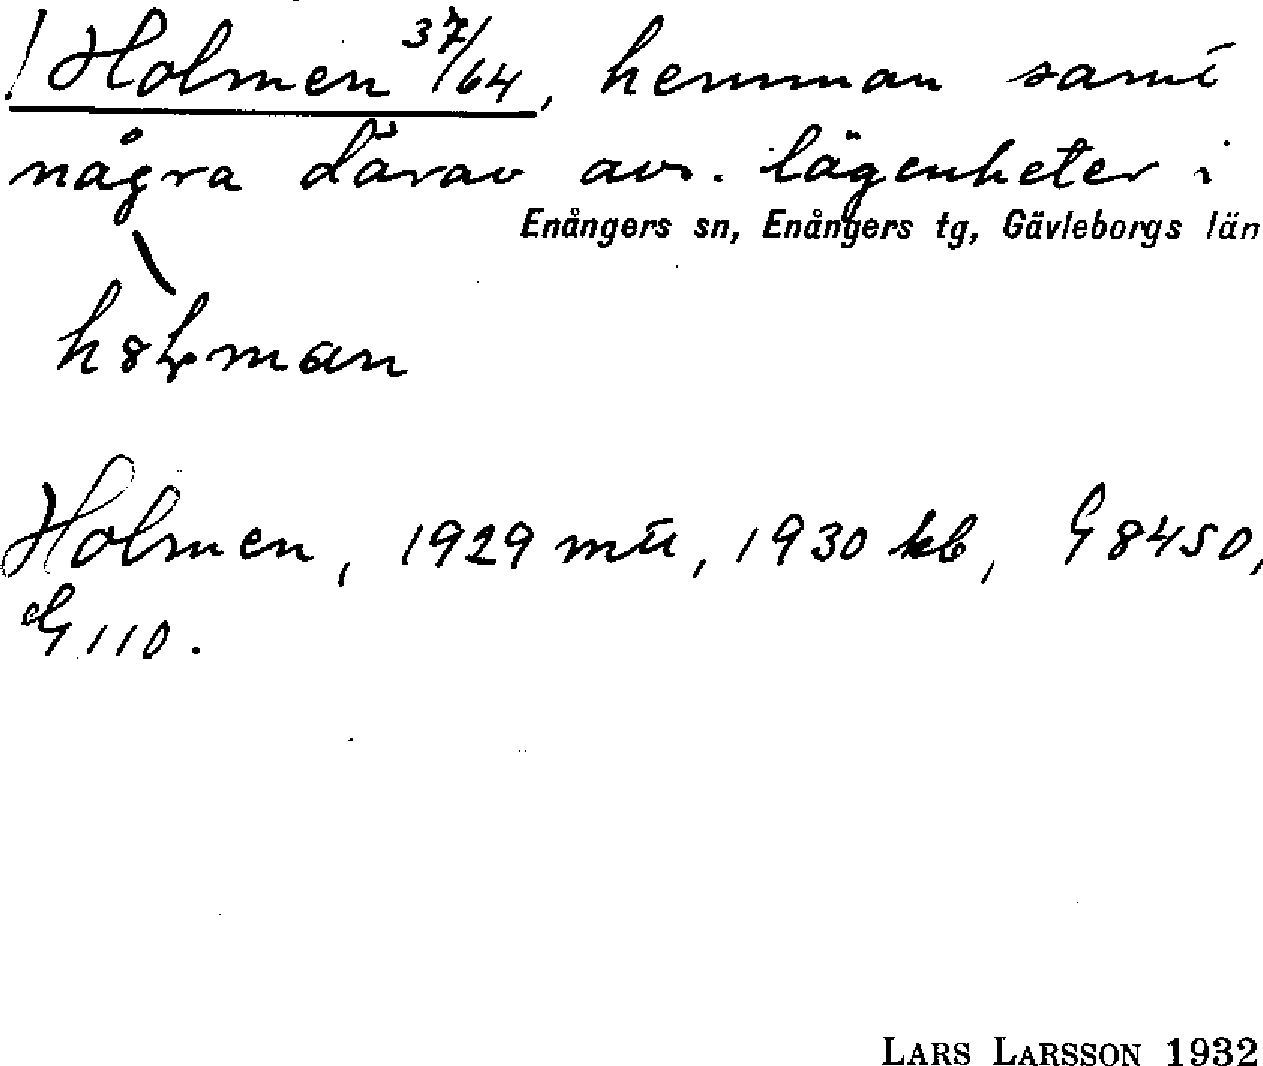 ! Holmen 37/64, hemman samt
några därav avs. lägenheter i
Enångers sn, Enångers tg, Gävleborgs län
Holmen, 1929 mtl, 1930 kb, G 8450,
G 110.
LARS LARSSON 1932